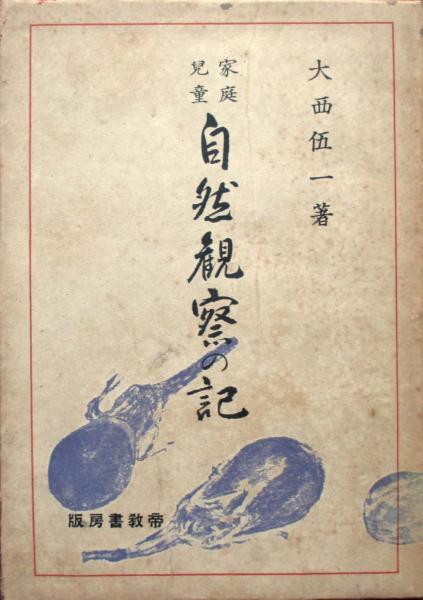 大西伍一著
家庭
兒童
自然観察の記
版房書教帝